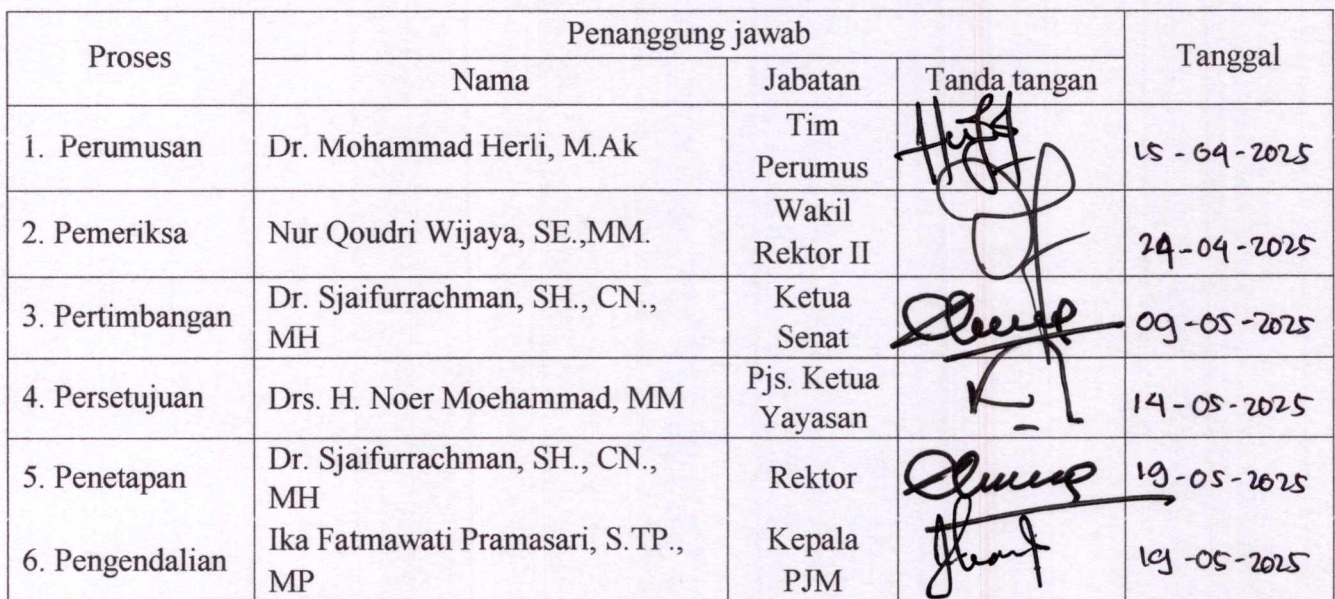 Proses Penanggung jawab Tanggal
Nama Jabatan Tanda tangan
1. Perumusan Dr. Mohammad Herli, M.Ak Tim Perumus 15-04-2025
2. Pemeriksa Nur Qoudri Wijaya, SE.,MM. Wakil Rektor II 24-04-2025
3. Pertimbangan Dr. Sjaifurrachman, SH., CN., MH Ketua Senat 09-05-2025
4. Persetujuan Drs. H. Noer Moehammad, MM Pjs. Ketua Yayasan 14-05-2025
5. Penetapan Dr. Sjaifurrachman, SH., CN., MH Rektor 19-05-2025
6. Pengendalian Ika Fatmawati Pramasari, S.TP., MP Kepala PJM 19-05-2025